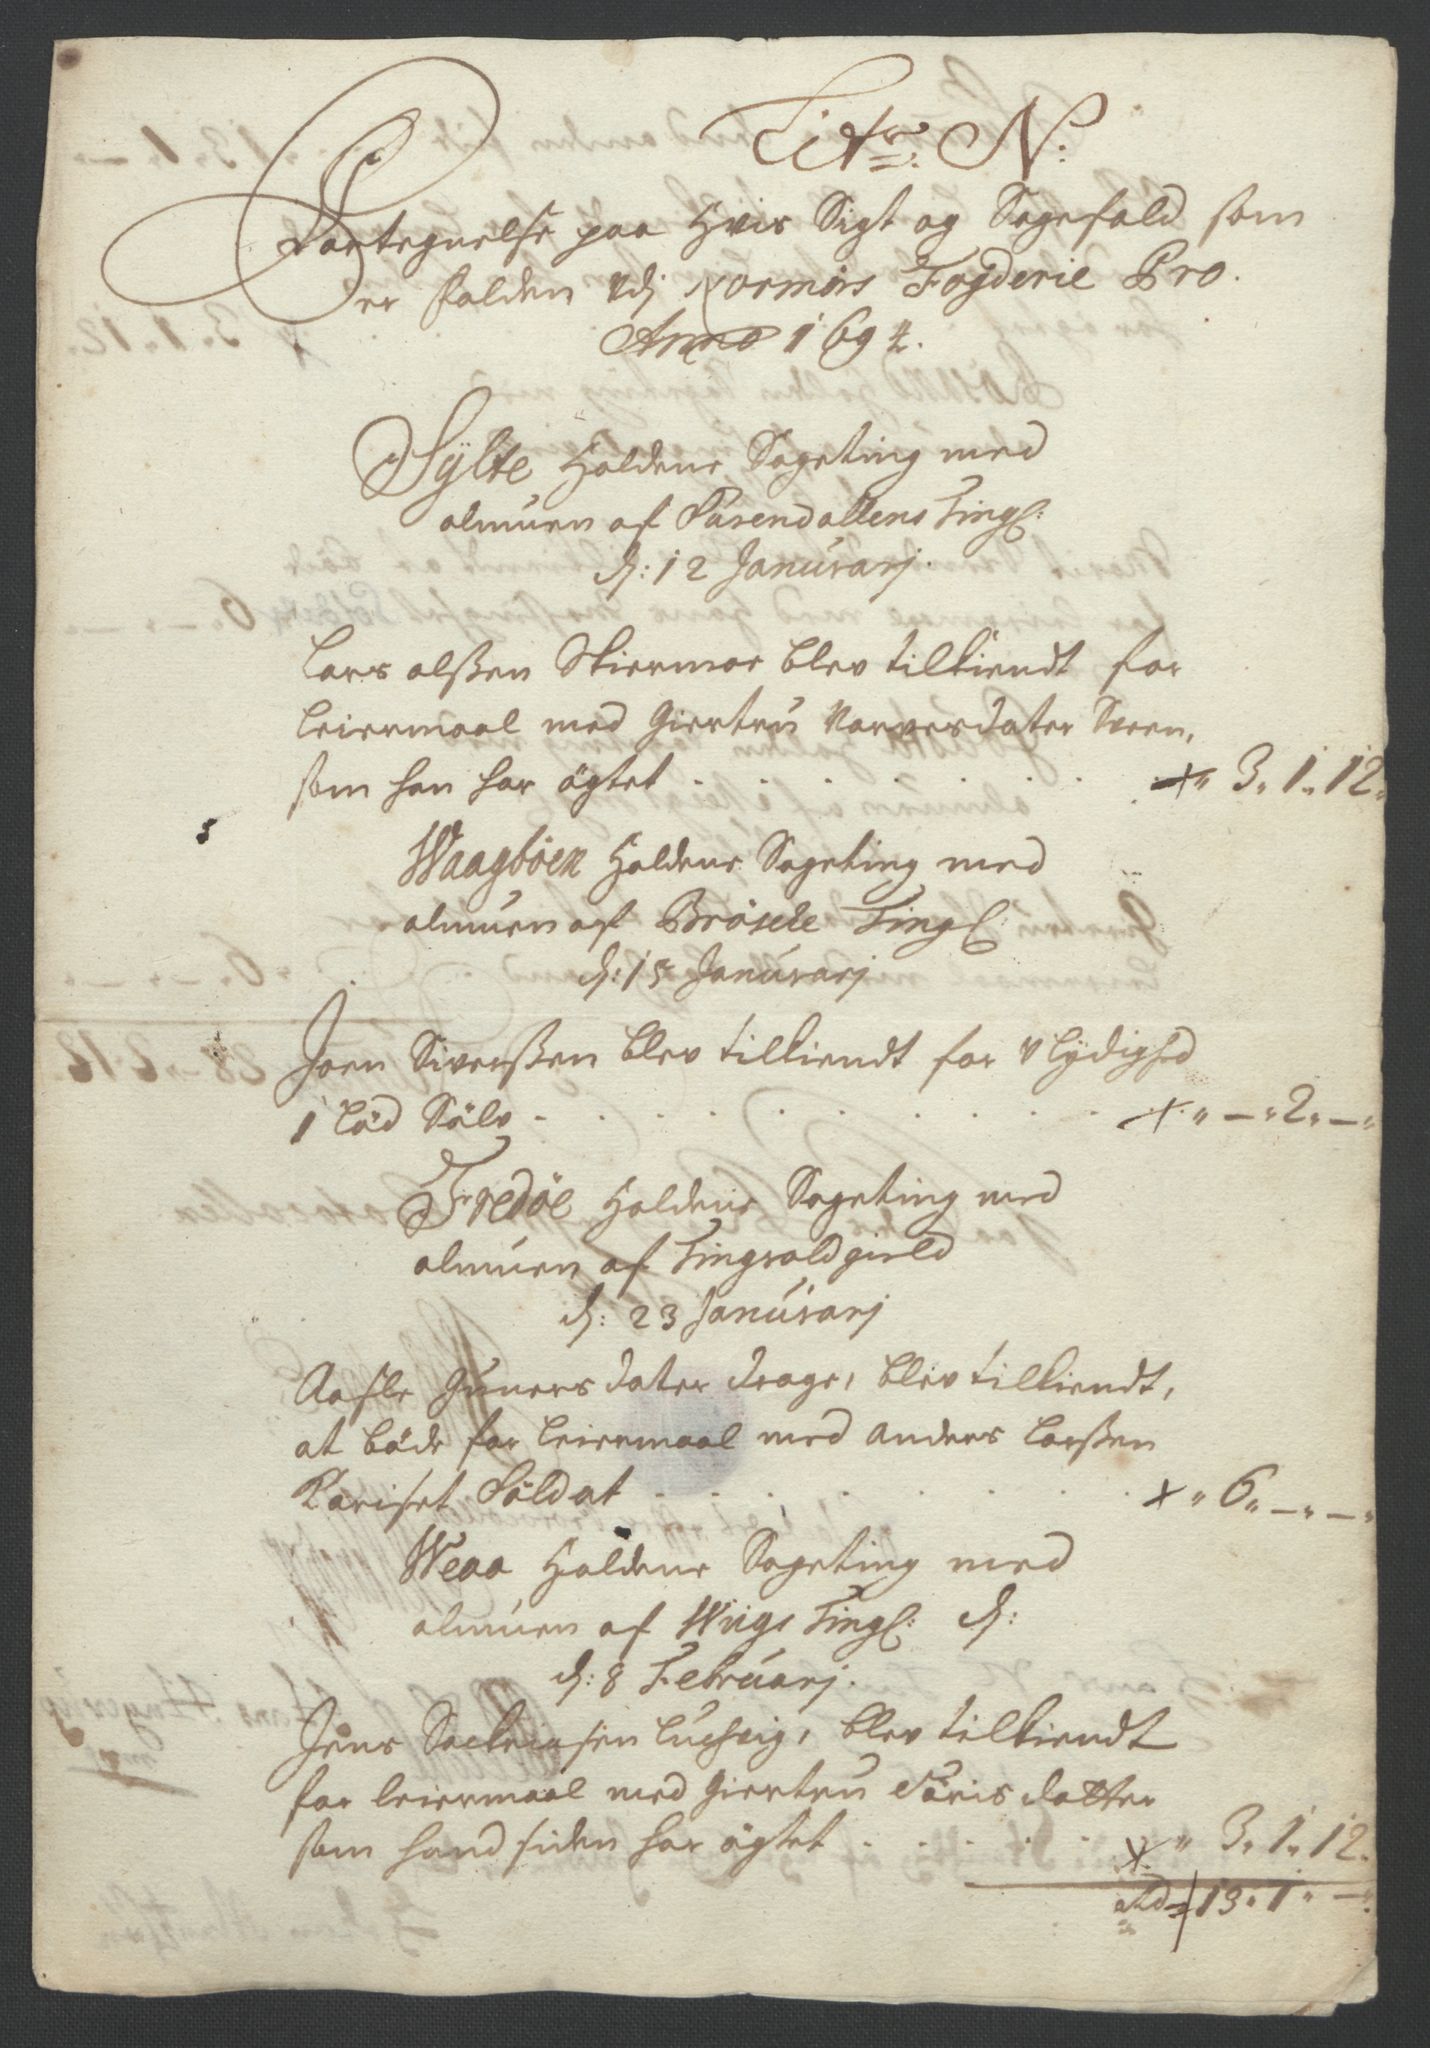 Litr: N:
Fortegnelse paa Hvis Sigt og Sagefald som
er falden udj Normørs Fogderie Pro.
Anno 1694.
Sylte Holdene Sageting med
almuen af Surendallens Tingl:
d: 12 Januarj.
Lars olßen Skiermoe blev tilkiendt for
leiermaal med Giertru Narvesdater Sveen,
som han har ägtet . . . . . . . + " 3. 1. 12.
Waagböen Holdene Sageting med
almuen af Brösche Tingl:
d: 15 Januarj
Joen Siverßen blev tilkiendt for Ulydighed
1 Lod Sölv . . . . . . . . + " — " 2 " — "
Fredöe Holdene Sageting med
almuen af Tingvoldgield
d: 23 Januarj
Aasle Gunersdater drage, blev tilkiendt,
at böde for leiermaal med Anders Larßen
Kariset Soldat . . . . . . . + " 6. — " — "
Weaa Holdene Sageting med
almuen af Wiigs Tingl: d:
d: 8 Februarj.
Jens Luchvig, blev tilkiendt
for leiermaal med Giertru Joris datter
som hand siden har ägtet . . . . + " 3. 1. 12.
Rd 13. 1. — "